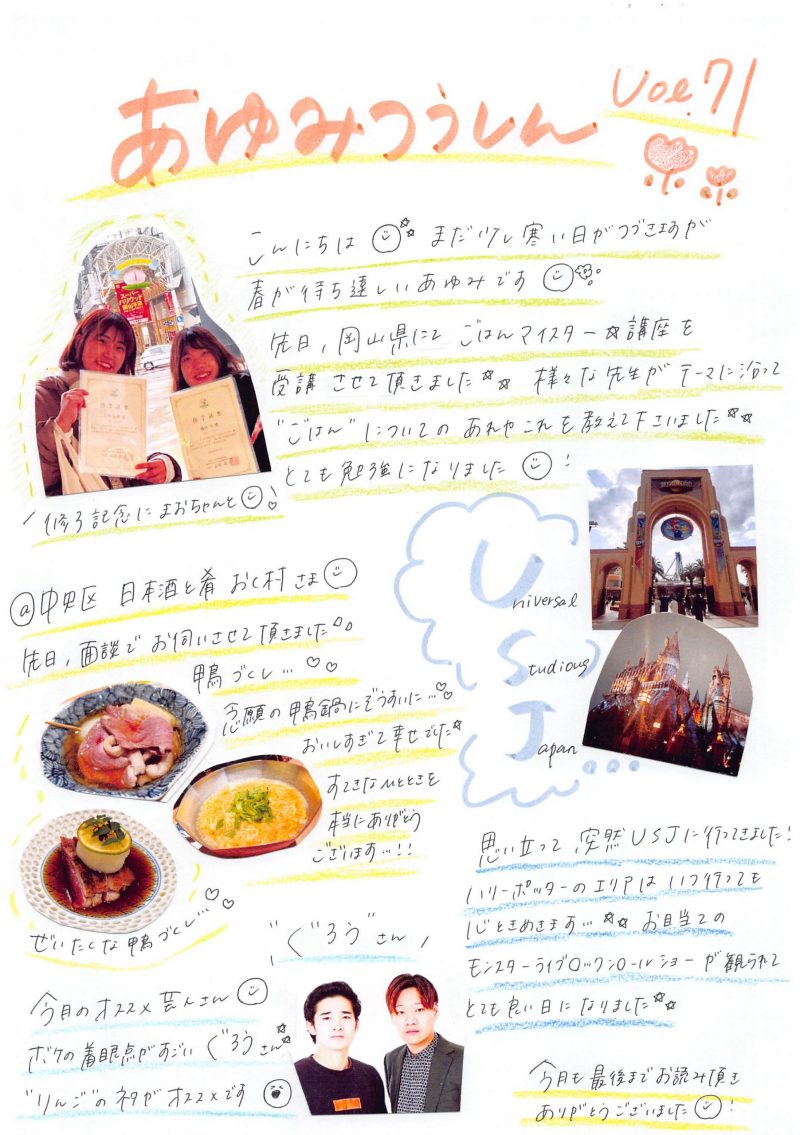 あゆみつうしん
Vol.71
こんにちは まだ少し寒い日がつづきますが
春が待ち遠しいあゆみです
先日,岡山県にて ごはんマイスター☆講座を
受講 させて頂きました☆☆ 様々な先生が テーマに沿って
"ごはん"についての あれやこれを教えて下さいました☆☆
とても勉強になりました !
修了証書
修了証書
修了記念に まおちゃんと !
@中央区 日本酒と肴 おく村さま
先日,面談で お伺いさせて頂きました
鴨づくし…♡♡
念願の鴨鍋にぞうすいに…♡♡
おいしすぎて幸せでした☆
すてきなひとときを
本当にありがとう
ございます…!!
ぜいたくな鴨づくし…♡♡
Universal
Studious
Japan...
思い立って 突然USJに行ってきました!
ハリーポッターのエリアは いつ行っても
心ときめきます…☆☆ お目当ての
モンスターライブロックンロールショーが観られて
とても良い日になりました☆☆
"ぐろう"さん
今月のオススメ芸人さん
ボケの着眼点がすごい ぐろうさん☆☆
"りんご"のネタが オススメです
今月も最後までお読み頂き
ありがとうございました !